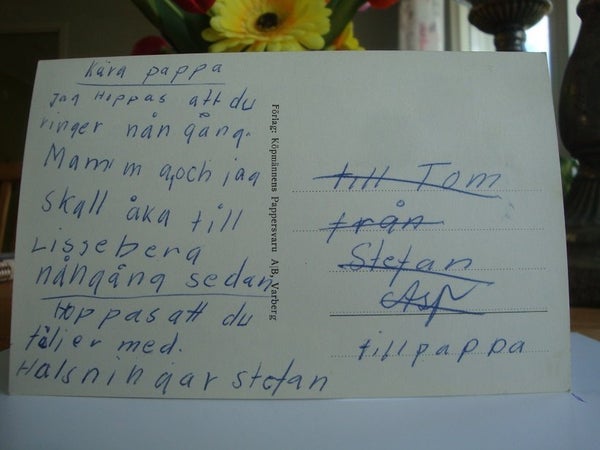 Kära pappa
Jag Hoppas att du
ringer nån gång.
Mamm m goch jag
skall åka till
Lisseberg
någång sedan
Hoppas att du
följer med.
Hälsningar stefan
Förlag: Köpmännens Pappersvaru A/B, Varberg
till Tom
från
Stefan
Asp
till pappa